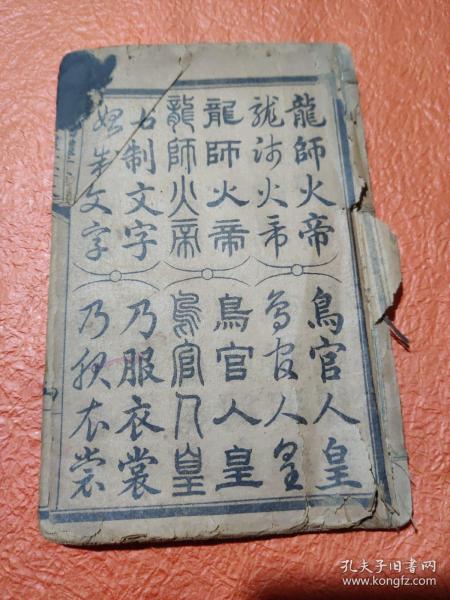 龍師火帝 鳥官人皇
龍師火帝 鳥官人皇
龍師火帝 鳥官人皇
龍師火帝 鳥官人皇
始制文字 乃服衣裳
始制文字 乃服衣裳
孔夫子旧书网
www.kongfz.com